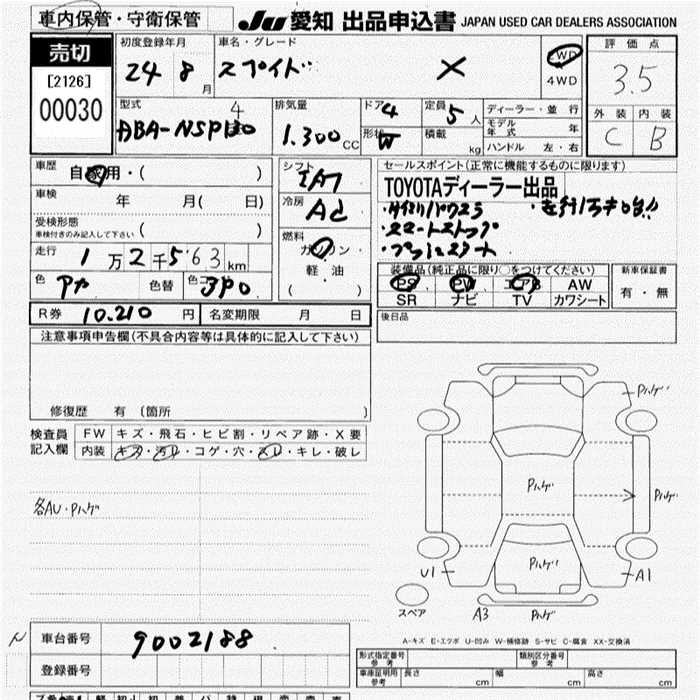 車内保管・守衛保管
JU 愛知 出品申込書 JAPAN USED CAR DEALERS ASSOCIATION
売切
[2126]
00030
初度登録年月
24 8 月
車名・グレード
スペイド X
2WD
4WD
評価点
3.5
外装 内装
C B
型式
ABA-NSP140
排気量
1.300 CC
ドア 4
形状 W
定員 5 人
積載 kg
ディーラー・並行
モデル年式 年
ハンドル 左・右
車歴 自家用・( )
車検 年 月( 日)
受検形態
車検付きのみ記入して下さい ( )
走行 1万2千563 km
色 アカ 色替 色コード 3P0
シフト IAT
冷房 AC
燃料 ガソリン・軽油
( )
セールスポイント(正常に機能するものに限ります)
TOYOTAディーラー出品
・走行1万キロ台!!
・スマートストップ
・プッシュスタート
装備品(純正品に限り○をつけてください)
PS PW エアB AW
SR ナビ TV カワシート
新車保証書
有・無
R券 10.210 円 名変期限 月 日
後日品
注意事項申告欄(不具合内容等は具体的に記入して下さい)
修復歴 有 (箇所 )
検査員記入欄
FW キズ・飛石・ヒビ割・リペア跡・X要
内装 キズ・汚れ・コゲ・穴・スレ・キレ・破レ
各AU・Pハゲ
Pハゲ
Pハゲ
Pハゲ
Pハゲ
U1
A1
スペア
A3
Pハゲ
A-キズ E-エクボ U-凹み W-補修跡 S-サビ C-腐食 XX-交換済
車台番号 9002188
登録番号
形式指定番号 参考
類別区分番号 参考
車庫証明用 参考 長さ cm 幅 cm 高さ cm